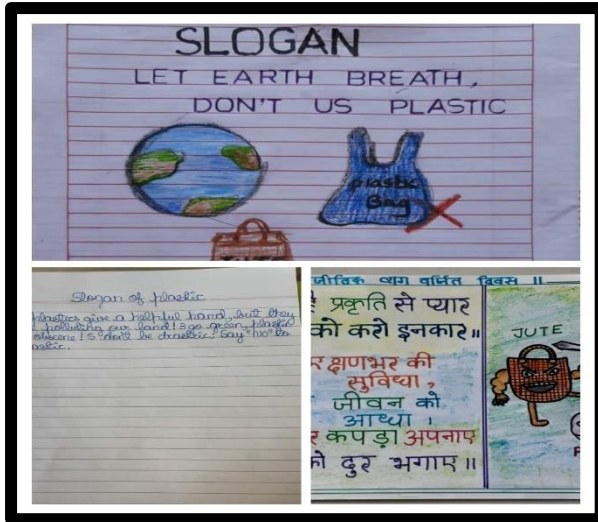 SLOGAN
LET EARTH BREATH,
DON'T US PLASTIC
plastic
Bag
Slogan of plastic
plastics give a helpful hand, but they
polluting our land! go green, plastic
obscene! don't be drastic! Say "no" to
astic.
व्याग वर्जित दिवस ॥
प्रकृति से प्यार
को करो इनकार॥
क्षणभर की
सुविधा,
जीवन को
आध्धा।
कपड़ा अपनाए
दुर भगाए॥
JUTE